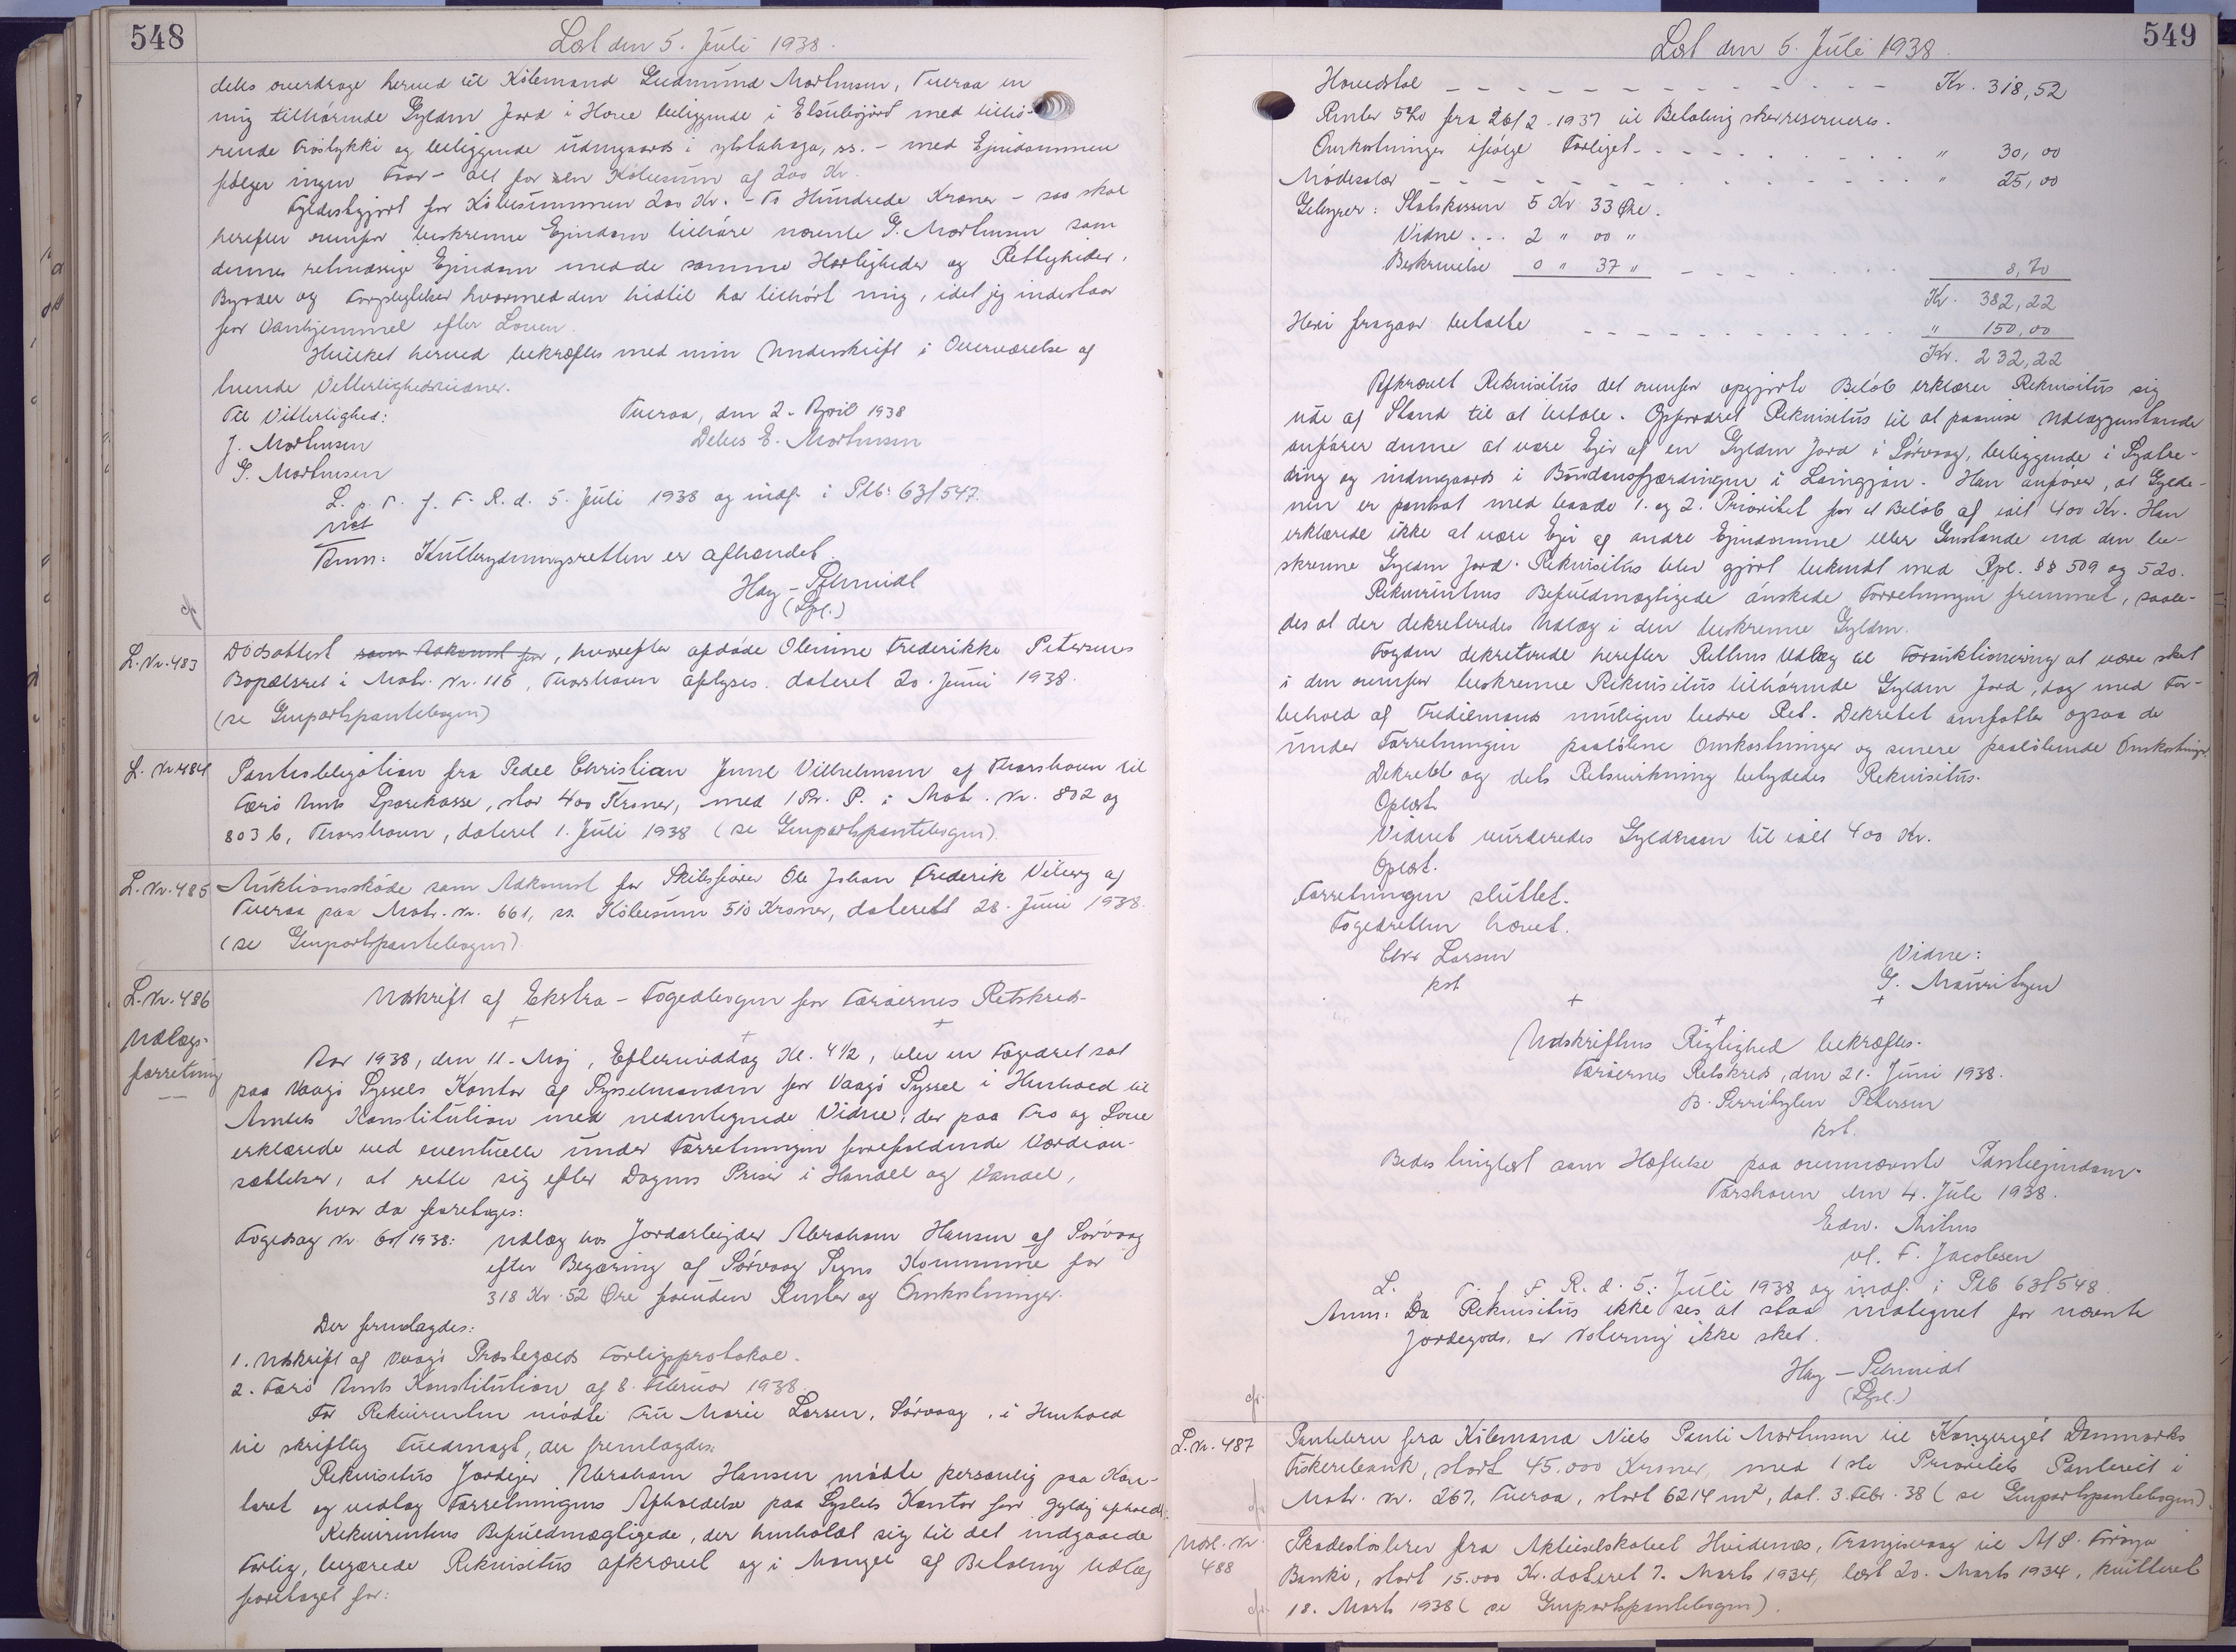 548
Læst den 5. Juli 1938.
dels overdrage herved til Købmand Gudmund Mortensen, Tveraa en
mig tilhørende Gylden Jord i Hove beliggende i Elsubsjørd med tilhø-
rende Trøstykki og beliggende udengaards i, ss. - med Ejendommen
følger ingen Faar - alt for en Købesum af 200 Kr.
Fyldestgjort for Købesummen 200 Kr. - To Hundrede Kroner - saa skal
herefter ovenfor beskrevne Ejendom tilhøre nævnte G. Mortensen som
dennes retmæssige Ejendom med de samme Herligheder og Rettigheder,
Byrder og Forpligtelser hvormed den hidtil har tilhørt mig, idet jeg indestaar
for Vanhjemmel efter Loven.
Hvilket herved bekræftes med min Underskrift i Overværelse af
tvende Vitterlighedsvidner.
Til Vitterlighed:
Tveraa, den 2. April 1938
J. Mortensen
Debes E. Mortensen
G. Mortensen
L. p. T. f. F. R. d. 5. Juli 1938 og indf. i Ptb: 63/547.
Not
Anm: Kulbrydningsretten er afhændet.
Hay - Schmidt
(Spl.)
L. Nr. 483
Dødsattest som Adkomst for, hvorefter afdøde Olevine Frederikke Petersens
Bopælsret i Matr. Nr. 116, Thorshavn aflyses. dateret 20. Juni 1938.
(se Genpartspantebogen)
L. Nr. 484
Pantobligation fra Pedel Christian Emil Vilhelmsen af Thorshavn til
Færø Amts Sparekasse, stor 400 Kroner, med 1 Pr. P. i Matr. Nr. 802 og
803 b, Thorshavn, dateret 1. Juli 1938 (se Genpartspantebogen).
L. Nr. 485
Auktionsskøde som Adkomst for Skibsfører Ole Johan Frederik Viberg af
Tveraa paa Matr. Nr. 661, ss. Købesum 510 Kroner, dateret 28. Juni 1938.
(se Genpartspantebogen).
L. Nr. 486
Udlægs-
forretning
Udskrift af Ekstra - Fogedbogen for Færøernes Retskreds.
Aar 1938, den 11. Maj, Eftermiddag Kl. 4 1/2, blev en Fogedret sat
paa Vaagø Syssels Kontor af Sysselmanden for Vaagø Syssel i Henhold til
Amtets Konstitution med nedentegnede Vidne; der paa Tro og Love
erklærede ved eventuelle under Forretningen forefaldende Værdian-
sættelser, at rette sig efter Dagens Priser i Handel og Vandel,
hvor da foretoges:
Fogedsag Nr. 60/1938: Udlæg hos Jordarbejder Abraham Hansen af Sørvaag
efter Begæring af Sørvaag Sogns Kommune for
318 Kr. 52 Øre foruden Renter og Omkostninger.
Der fremlagdes:
1. Udskrift af Vaagø Præstegælds Forligsprotokol.
2. Færø Amts Konstitution af 8. Februar 1938
For Rekvirenten mødte Fru Marie Larsen, Sørvaag, i Henhold
til skriftlig Fuldmagt, der fremlagdes.
Rekvisitus Jordejer Abraham Hansen mødte personlig paa Kon-
toret og vedtog Forretningens Afholdelse paa Syslets Kontor for gyldig afholdt.
Rekvirentens Befuldmægtigede, der henholdt sig til det indgaaede
Forlig, begærede Rekvisitus afkrævet og i Mangel af Betaling Udlæg
foretaget for:
549
Læst den 5. Juli 1938.
Hovedstol - - - - - Kr. 318,52
Renter 5% fra 26/2 - 1937 til Betaling sker reserveres.
Omkostninger ifølge Forliget - - - - - " 30,00
Mødesalær - - - - - " 25,00
Gebyrer: Statskassen 5 Kr. 33 Øre.
Vidne . . . 2 " 00 "
Beskrivelse 0 " 37 " - - - - - 8,70
Kr. 382,22
Heri fragaar betalte - - - - - " 150,00
Kr. 232,22
Afkrævet Rekvisitus det ovenfor opgjorte Beløb erklærer Rekvisitus sig
ude af Stand til at betale. Opfordret Rekvisitus til at paavise Udlægsgenstande
anfører denne at være Ejer af en Gylden Jord i Sørvaag, beliggende i
og indengaards i i. Han anfører, at Gylde-
nen er pantsat med baade 1. og 2. Prioritet for et Beløb af ialt 400 Kr. Han
erklærede ikke at være Ejer af andre Ejendomme eller Genstande end den be-
skrevne Gylden Jord. Rekvisitus blev gjort bekendt med Rpl. §§ 509 og 520.
Rekvirentens Befuldmægtigede ønskede Forretningen fremmet, saale-
des at der dekreteredes Udlæg i den beskrevne Gylden.
Fogden dekreterede herefter Rettens Udlæg til Forauktionering at være sket
i den ovenfor beskrevne Rekvisitus tilhørende Gylden Jord, dog med For-
behold af Trediemands muligen bedre Ret. Dekretet omfatter ogsaa de
under Forretningen paaløbne Omkostninger og senere paaløbende Omkostninger.
Dekretet og dets Retsvirkning betydedes Rekvisitus.
Oplæst.
Vidnet vurderedes Gyldenen til ialt 400 Kr.
Oplæst.
Forretningen sluttet.
Fogedretten hævet.
Chr. Larsen
kst
Vidne:
G. Mauritzen
Udskriftens Rigtighed bekræftes.
Færøernes Retskreds, den 21. Juni 1938.
B. Petersen
kst.
Bedes tinglæst som Hæftelse paa ovennævnte Pantejendom.
Tórshavn den 4. Juli 1938.
Edw. Mitens
v/. F. Jacobsen
L. p. T. f. F. R. d. 5. Juli 1938 og indf. i Ptb 63/548.
Anm: Da Rekvisitus ikke ses at staa indtegnet for nævnte
Jordegods, er Notering ikke sket.
Hay - Schmidt
(Spl.)
L. Nr. 487
Pantebrev fra Købmand Niels Pauli Mortensen til Kongeriget Danmarks
Fiskeribank, stort 45.000 Kroner, med 1ste Prioritets Panteret i
Matr. Nr. 267, Tveraa, stort 6214 m², dat. 3. Febr. 38 (se Genpartspantebogen).
Udsl. Nr.
488
Skadesløsbrev fra Aktieselskabet Hvidenæs, Trangisvaag til A/S. Føroya
Banki, stort 15.000 Kr. dateret 7. Marts 1934, læst 20. Marts 1934, kvitteret
18. Marts 1938 (se Genpartspantebogen).